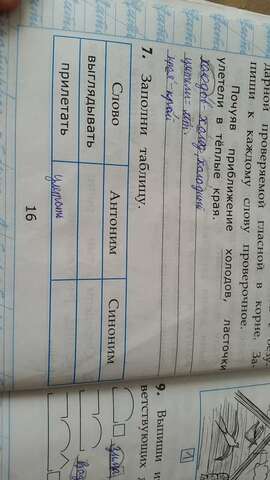 дарной проверяемой гласной в корне. За-
пиши к каждому слову проверочное.
Почуяв приближение холодов, ласточки
улетели в тёплые края.
холодов - холод, холодный
края - край
7. Заполни таблицу.
Слово Антоним Синоним
выглядывать
прилетать
16
9. Выпиши и
ветствующих
1